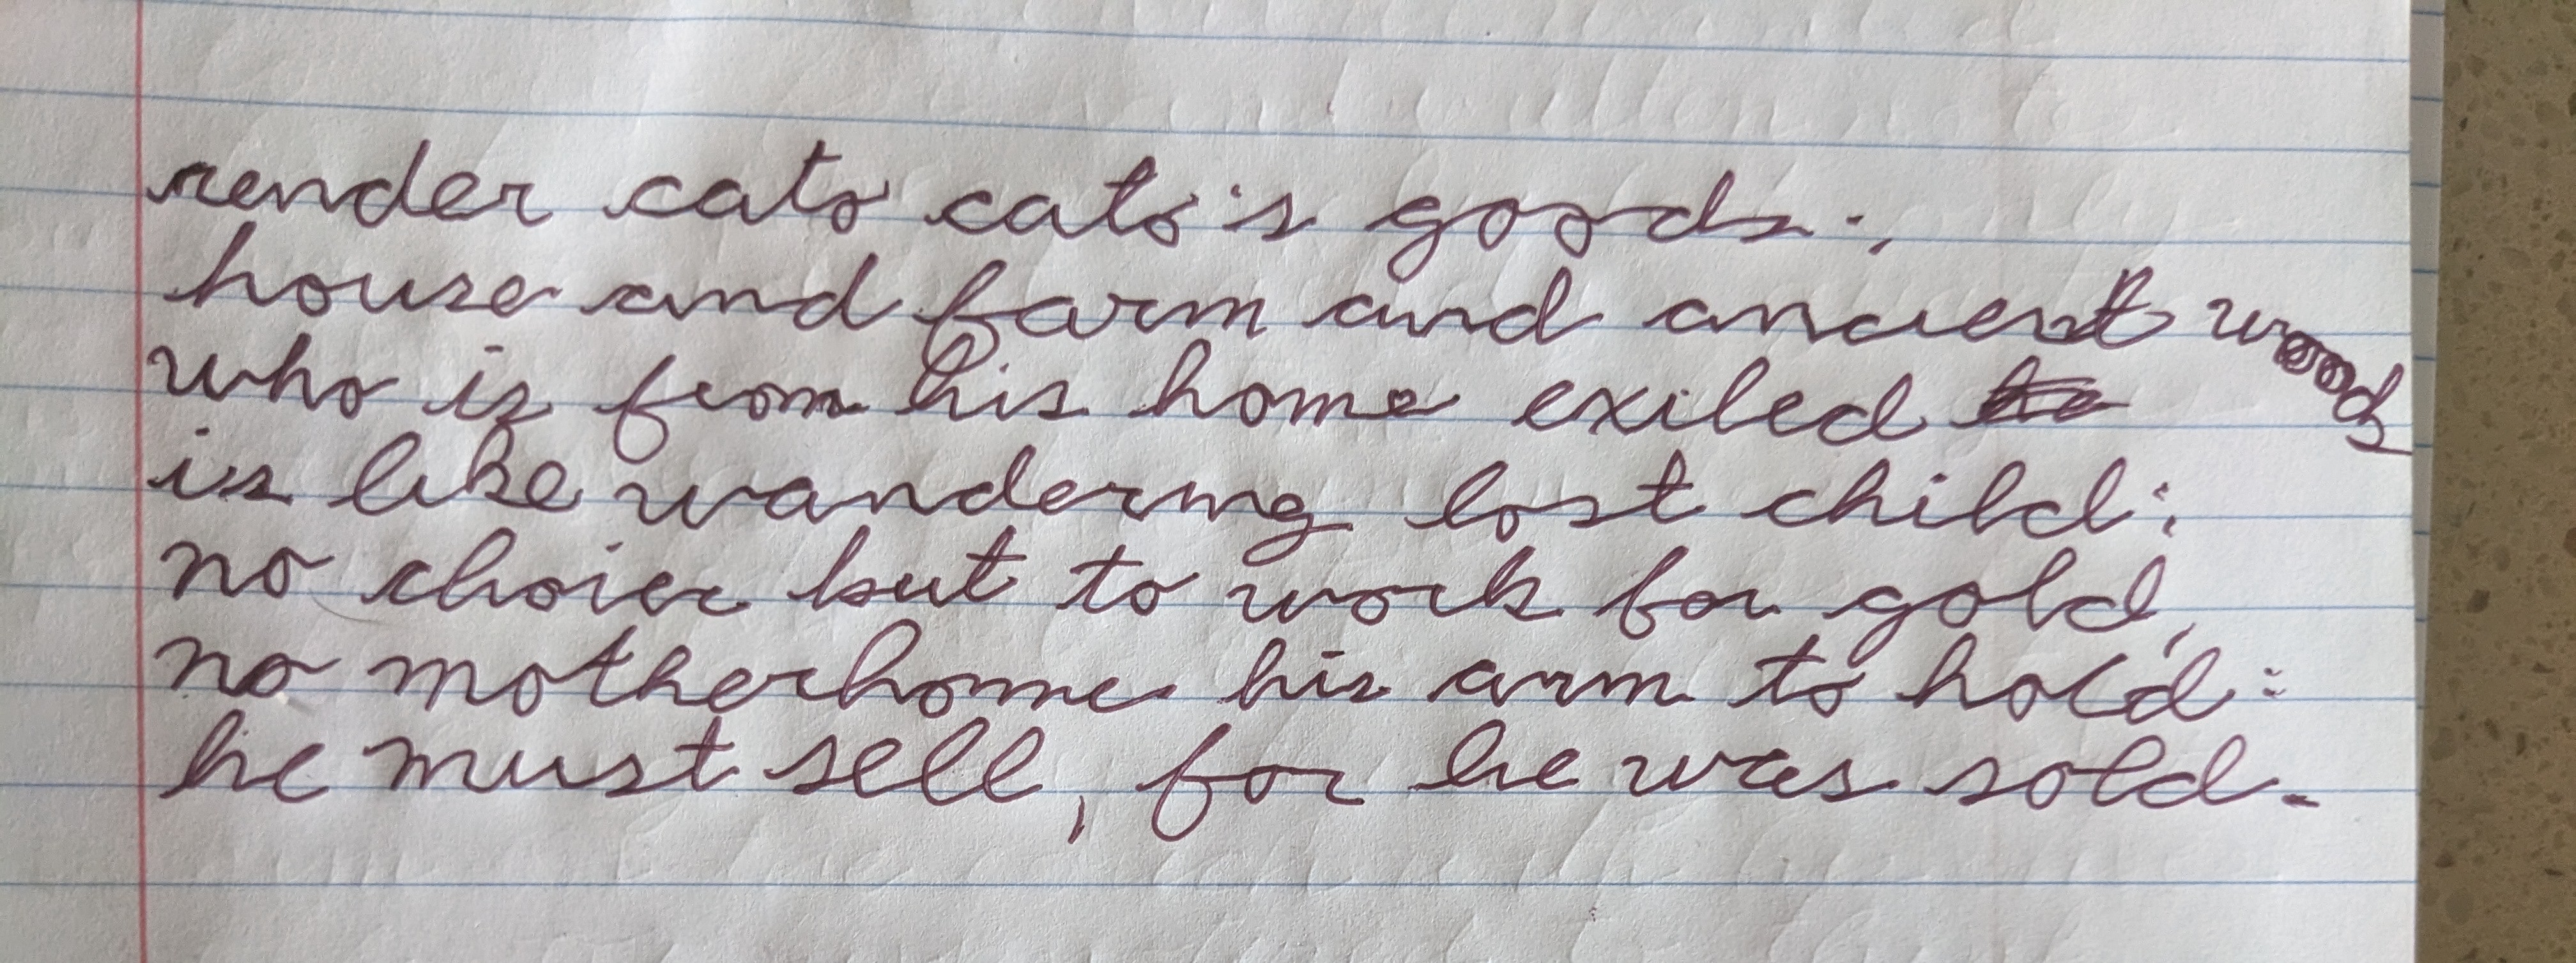 render cato cato's goods:,
house and farm and ancient woods
who is from his home exiled
is like wandering lost child;
no choice but to work for gold,
no motherhome his arm to hold:
he must sell, for he was sold.